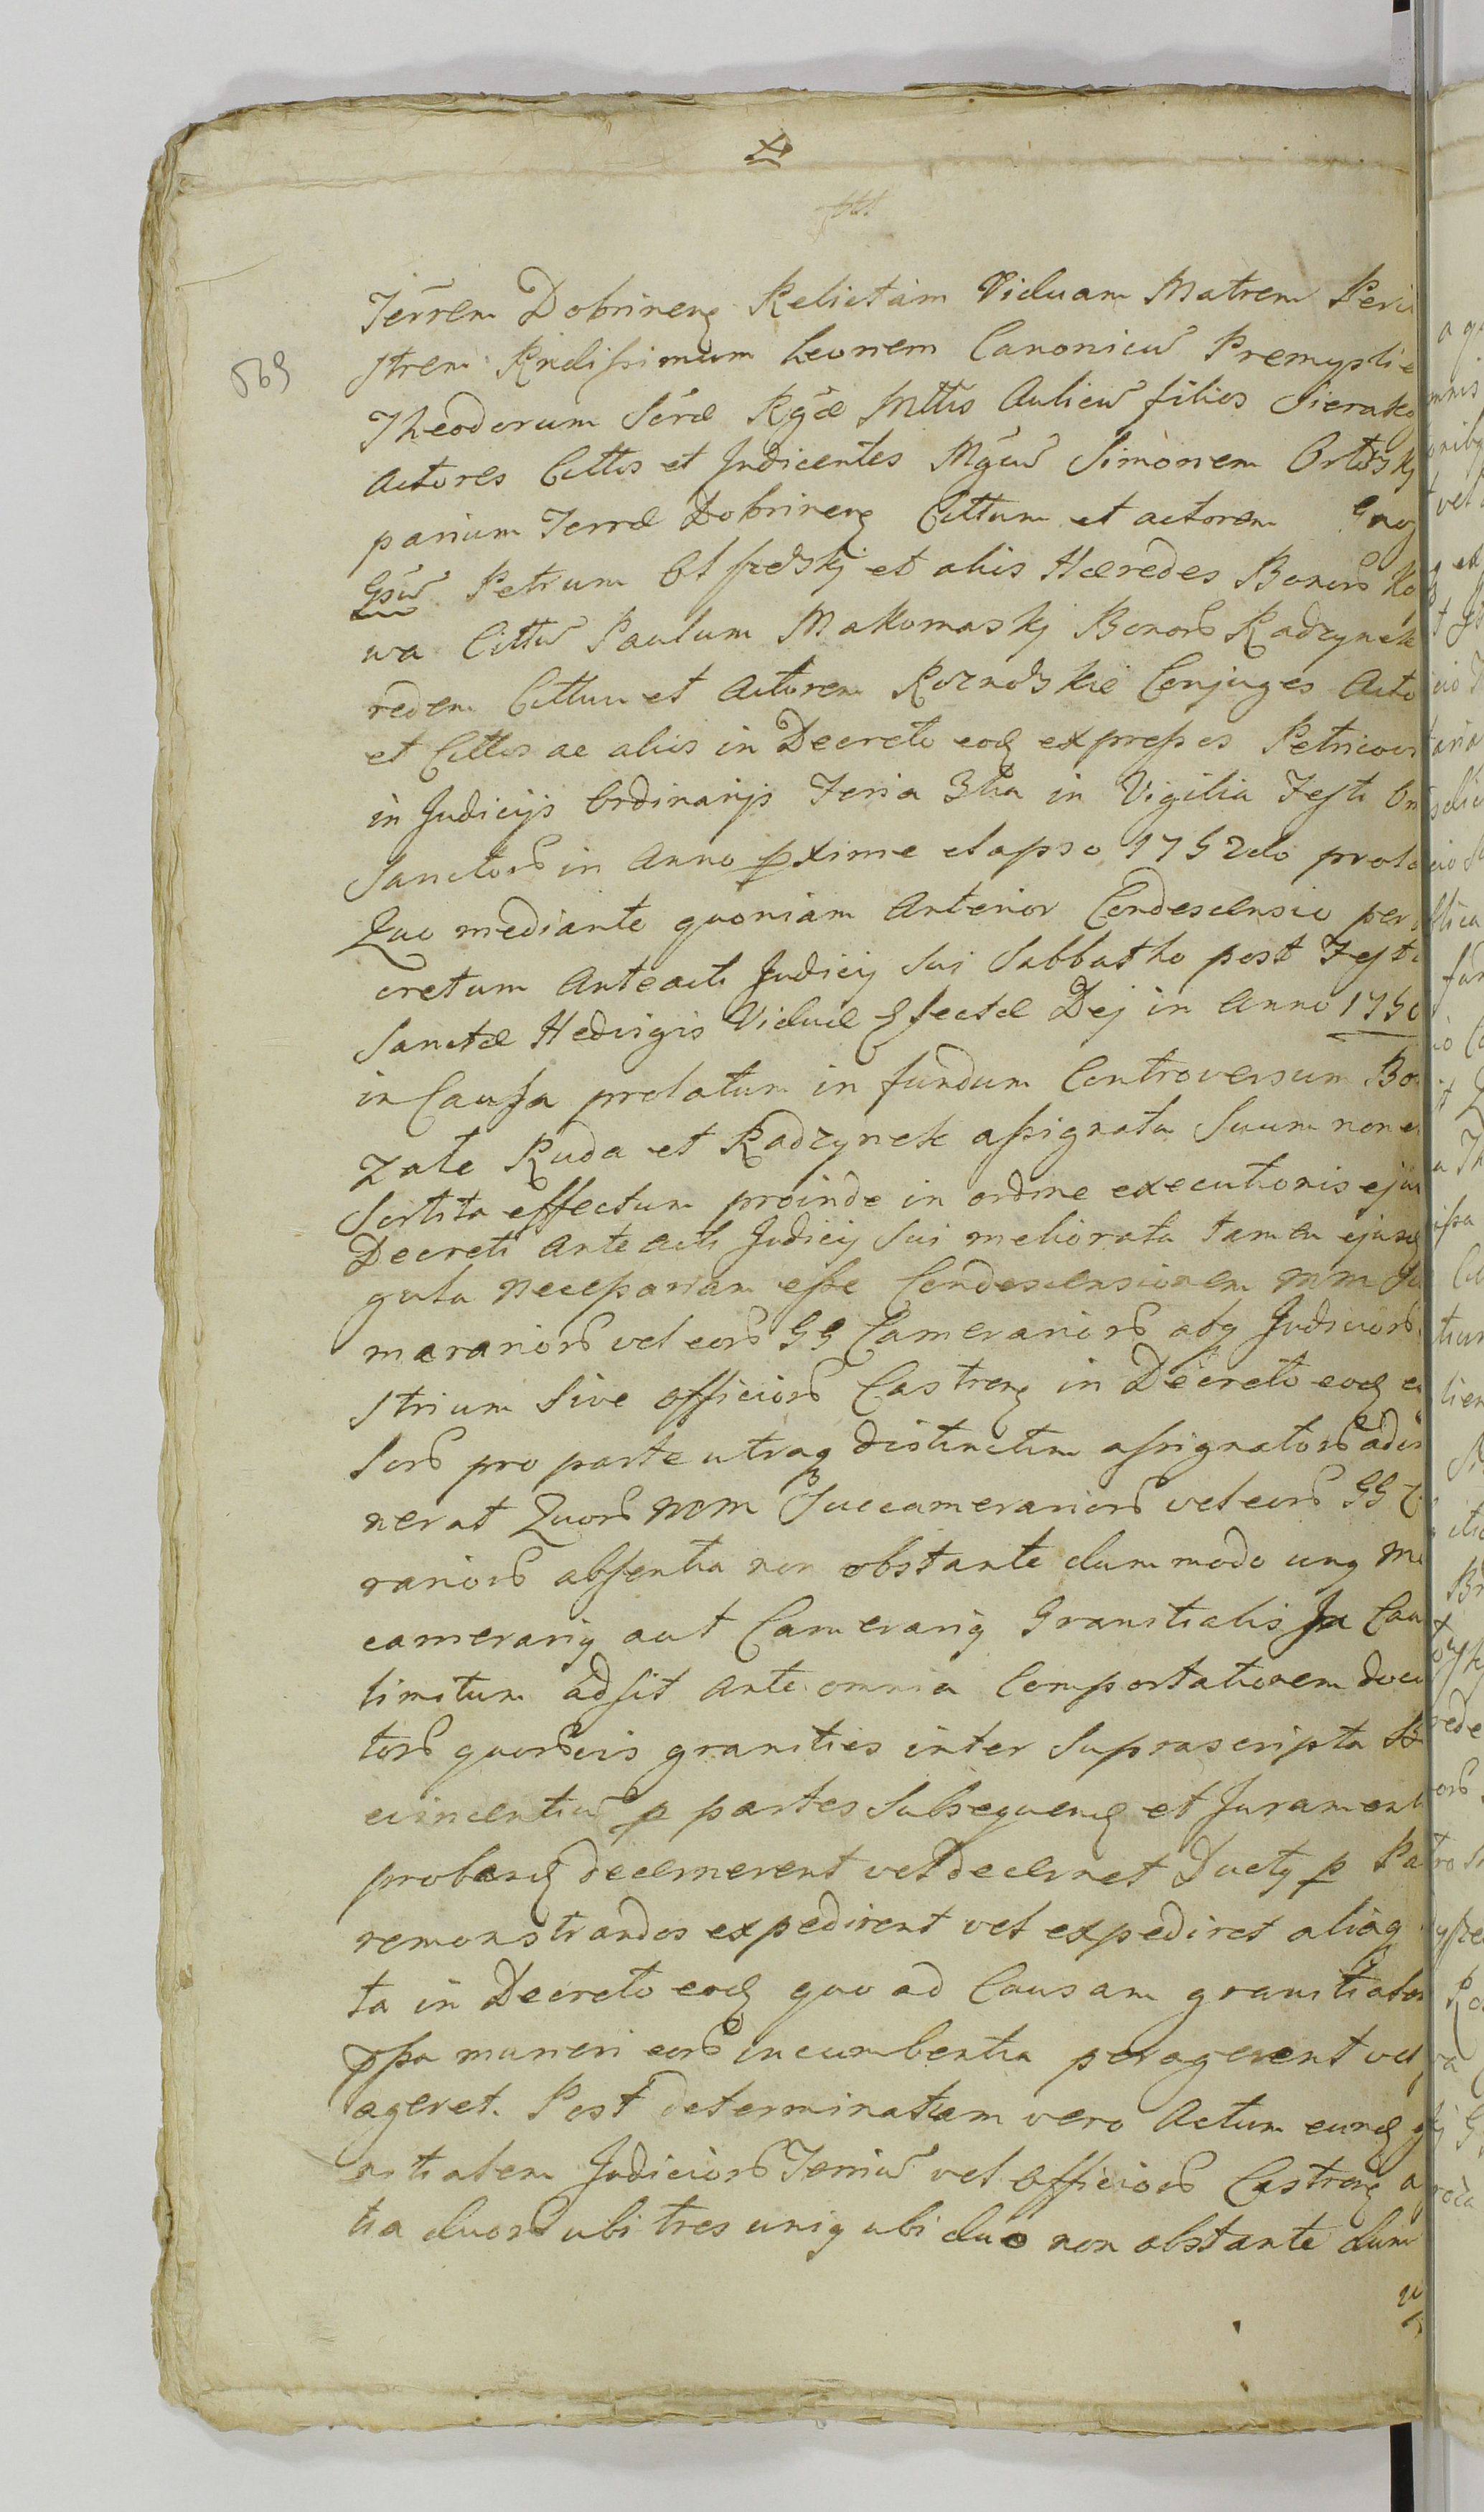 569
Terrem Dobrinen Relictam Viduam Matrem Peri
strem Rndissimum Leonem Canonicu Premyslie
Theodorum Sera Rgæ Mttis Aulicu filios Sierako
Actores Cittos et Indicentes Mgcu Simonem Orłoski
parium Terræ Dobrinen Cittum et actorem
Gsu Petrum Olszeski et alios Hæredes Bonor Ko
wa Cittu Paulum Makomaski Bonor Radzynek
redem Cittum et Actorem Roznoskie Conjuges Acto
et Cittos ac alios in Decreto eod expressos Petricov
in Judicijs Ordinarijs Feria 3tia in Vigilia Festi Om
Sanctor in Anno pxime elapso 1752do prola
Quo mediante quoniam Anterior Condescensio per
cretum Anteacti Judicij Sui Sabbatho post Festu
Sanctæ Hedvigis Viduæ Electæ Dej in Anno 1750
in Causa prolatum in fundum Controversum Bo
Zale Ruda et Radzynek assignata Suum non e
Sortita effectum proinde in ordine executionis eju
Decreti Ante acti Judicij Sui meliorata tamen ejusd
gula necessariam esse Condescensionem MM Su
merarior vel eor GG Camerarior atq Judicior
strium Sive officior Castren in Decreto eod e
sor pro parte utraq distinctim assignator adin
nerat Quor MM Succamerarior vel eor GG C
rarior absentia non obstante dum modo unq M
camerarij aut Camerarij Granitialis In Cau
limitum adsit Ante omnia Comportationem docu
tor quorvis granities inter Suprascripta B
evincentiu p partes Subsequend et Jurament
proband decernerent vel decerneret Ductq p Pa
remonstrandos expedirent vel expediret aliaq
ta in Decreto eod quo ad Causam granitialem
pssa muneri eor incumbentia peragerent vel
ageret. Post determinatam vero Actum eund g
nitialem Judicior Terriu vel Officior Castren a
tia duor ubi tres uniq ubi duo non obstante dum